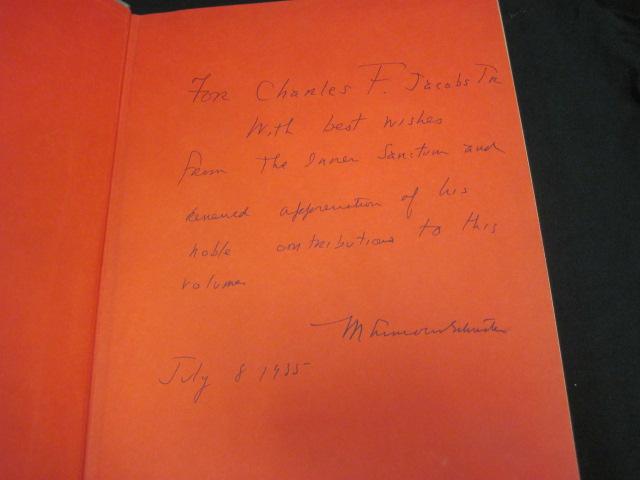 For Charles F. Jacobs Jr
With best wishes
from The Inner Sanctum and
renewed appreciation of his
noble contributions to this
volume
M Lincoln Schuster
July 8 1955